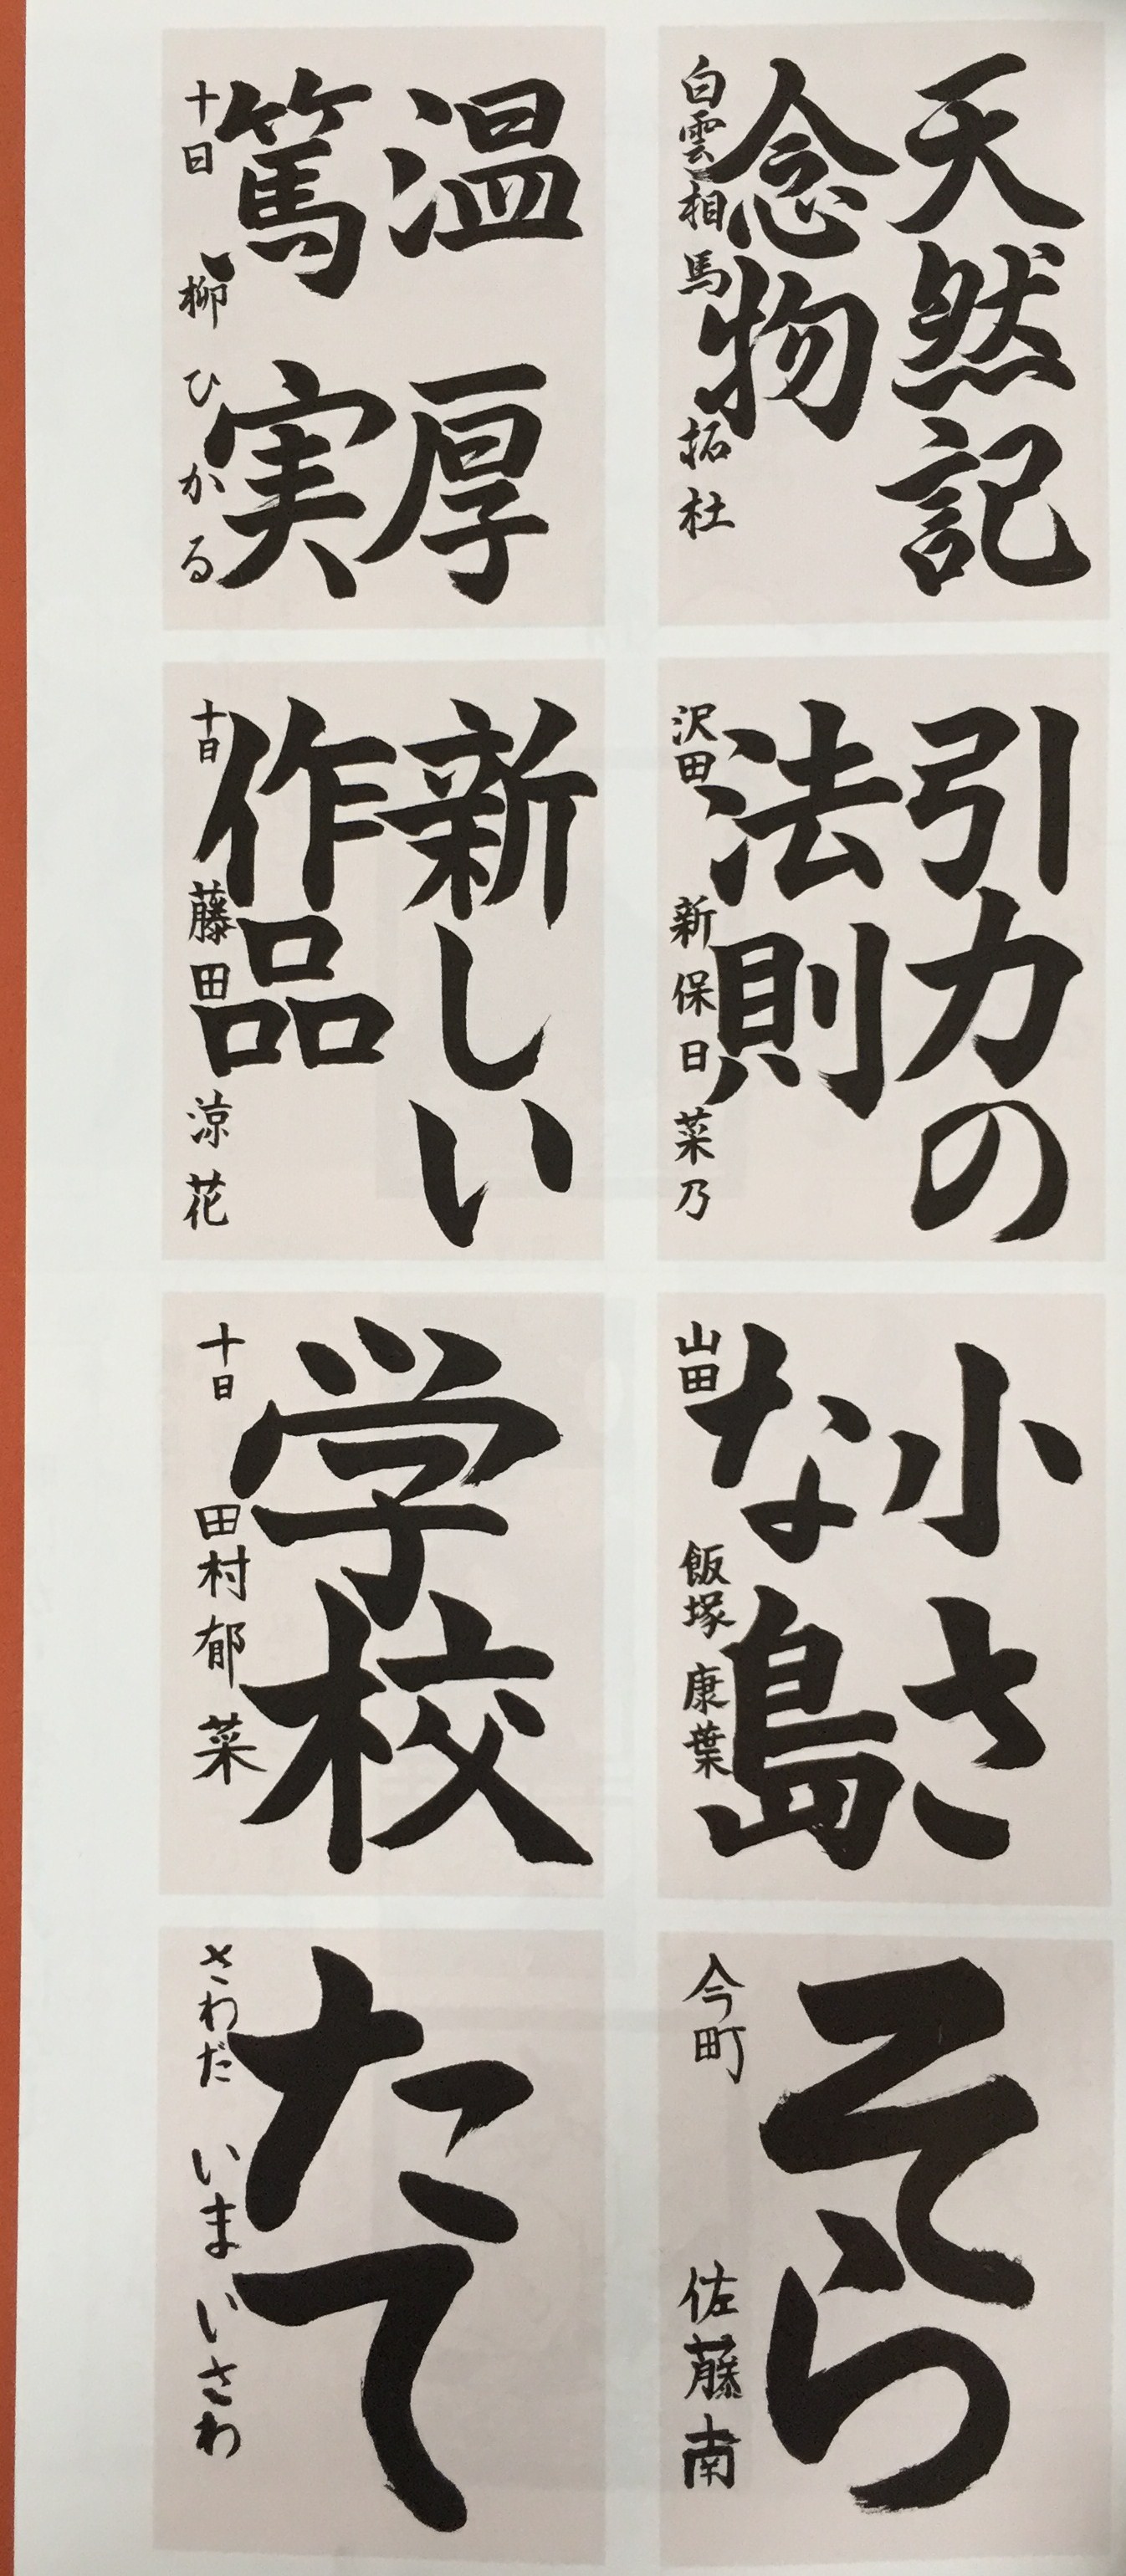 天然記
念物
白雲 相馬 拓杜
温厚
篤実
十日 柳 ひかる
引力の
法則
沢田 新保日菜乃
新しい
作品
十日 藤田 涼花
小さ
な島
山田 飯塚 康葉
学校
十日 田村郁菜
そら
今町 佐藤南
たて
さわだ いまいさわ